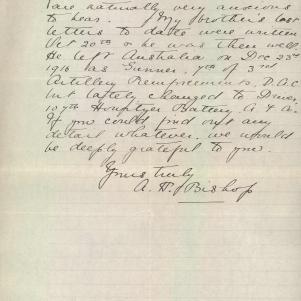 are naturally very anxious
to hear. My brother's last
letters to date were written
Oct 20th & he was then well.
He left Australia on Dec 23rd
1916 as Gunner, 7th of 3rd
Artillery Reinforcements. D.A.C
but lately changed to Driver,
107th Howitzer Battery A.F.A.
If you could find out any
detail whatever, we would
be deeply grateful to you.
Yours truly
A. Bishop